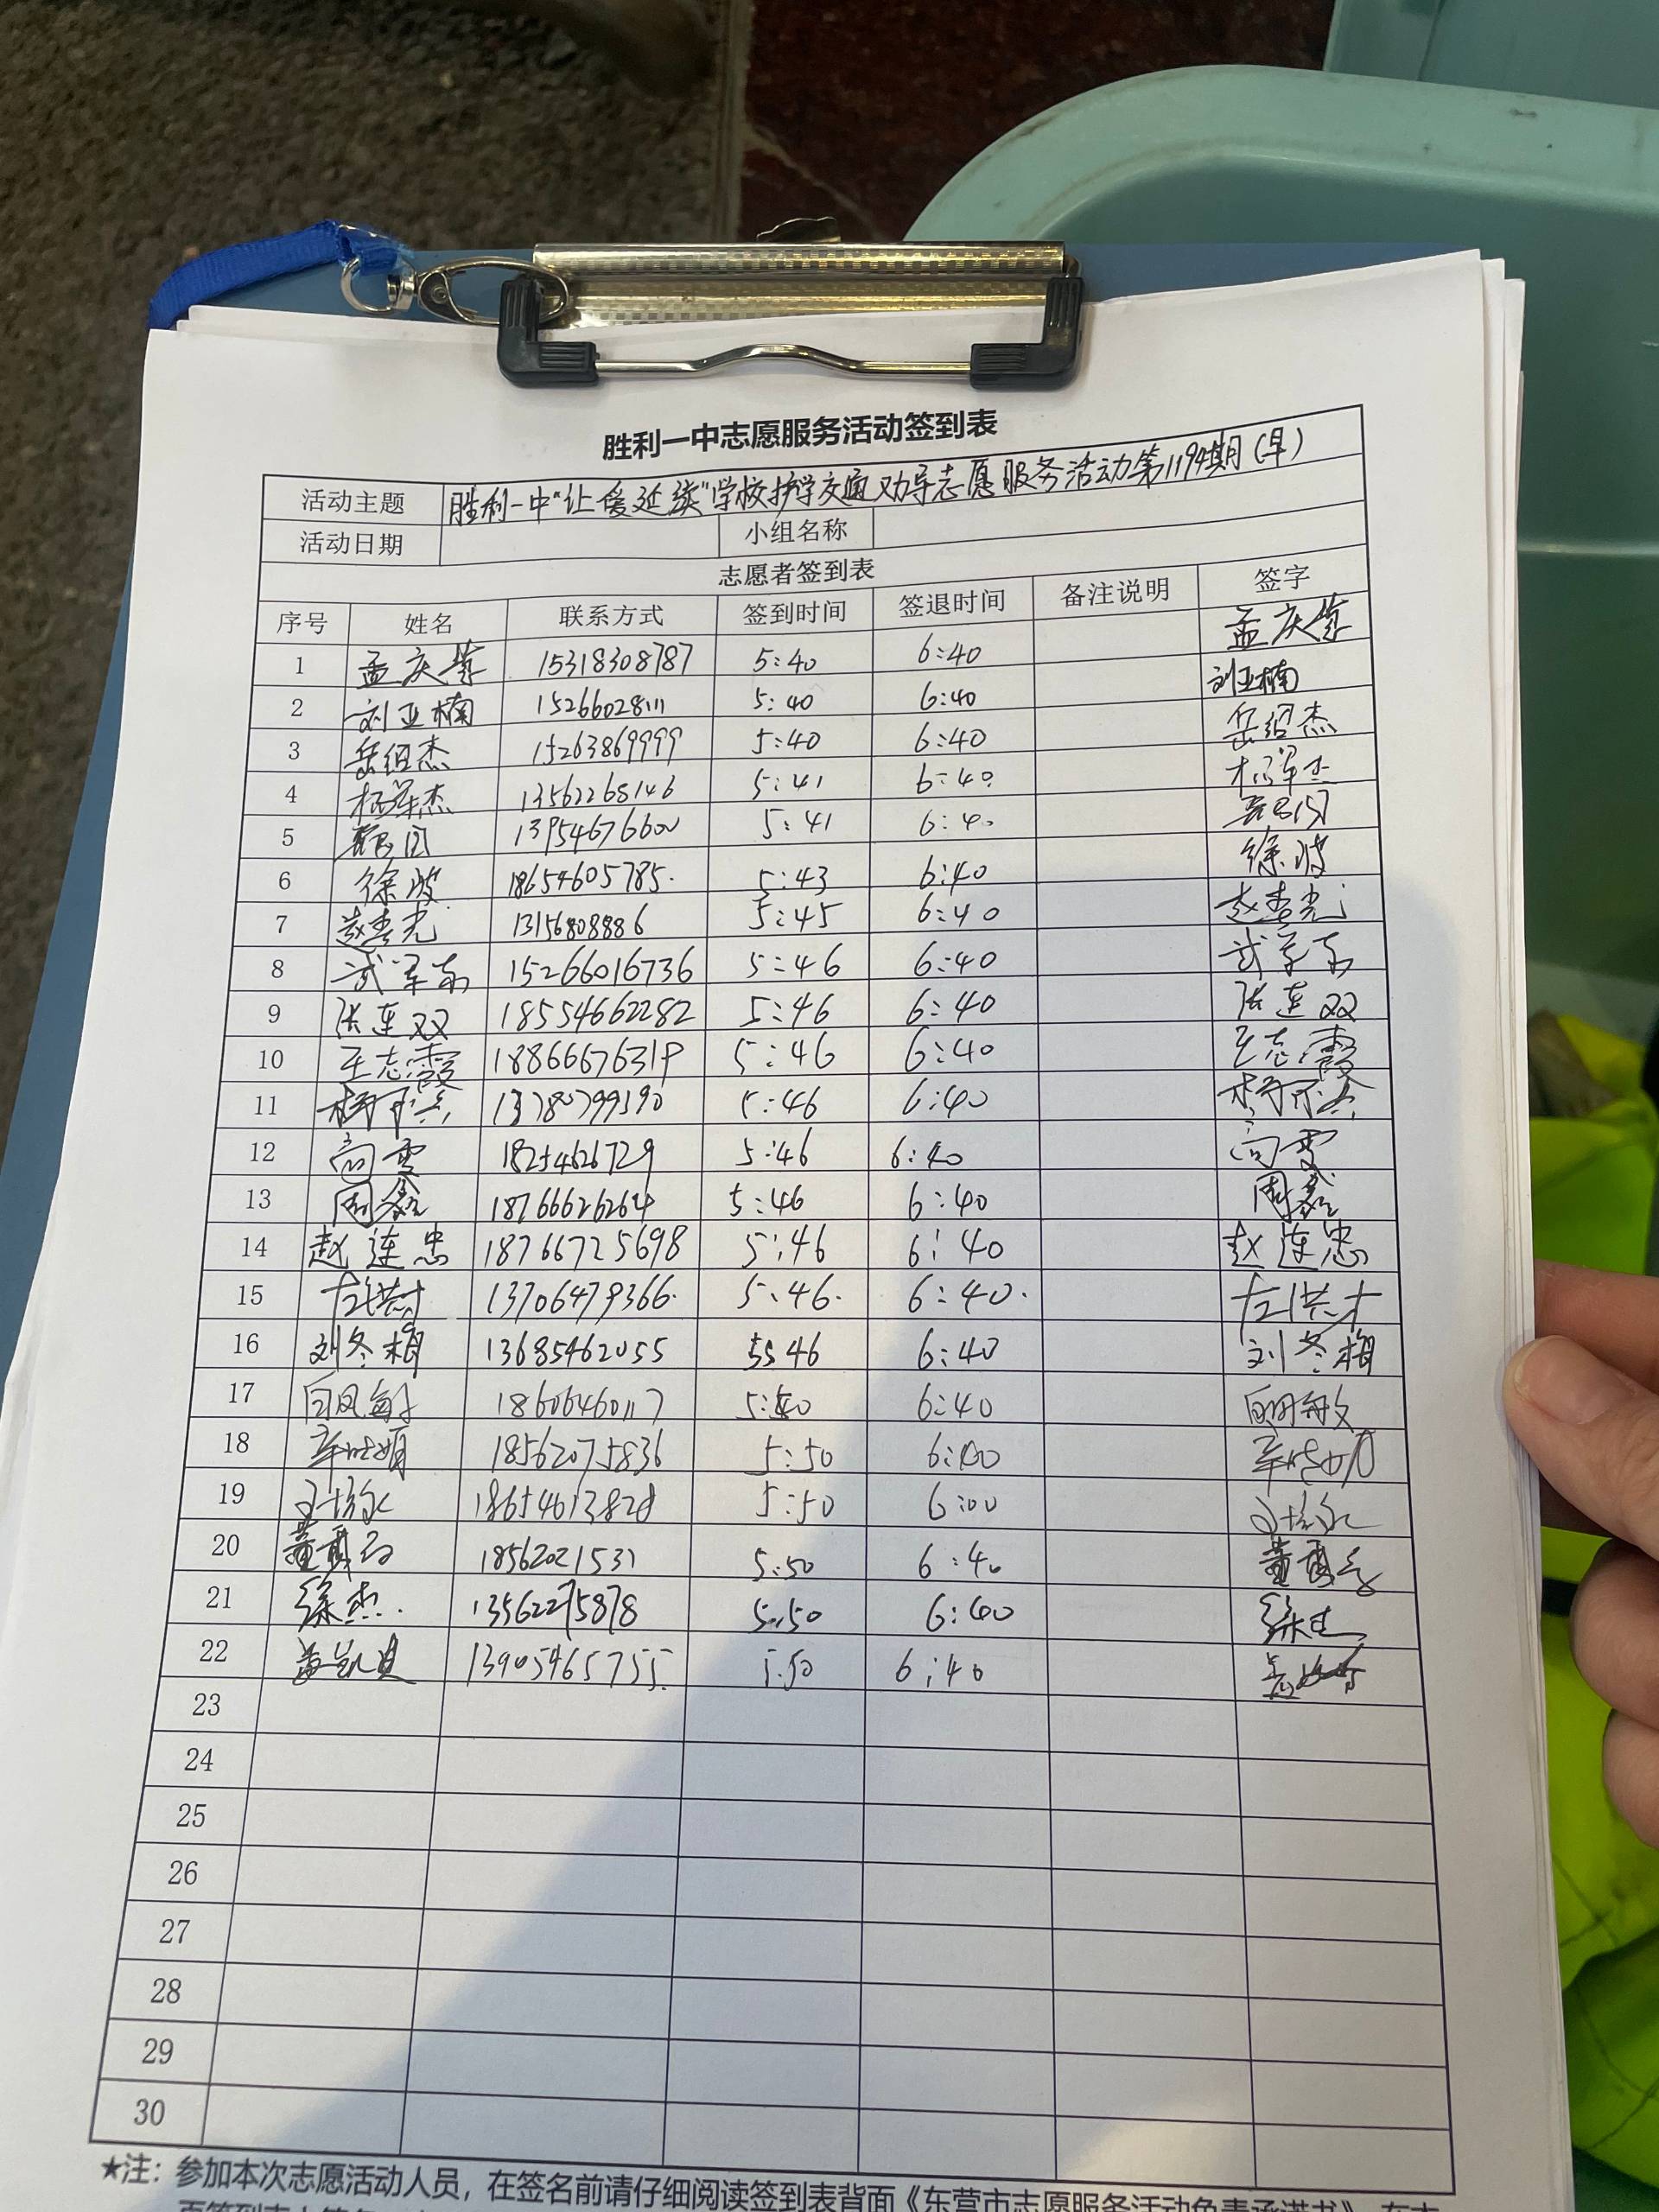 胜利一中志愿服务活动签到表
活动主题 胜利一中"让爱延续"学校护学交通劝导志愿服务活动第1194期(早)
活动日期 小组名称
志愿者签到表
序号 姓名 联系方式 签到时间 签退时间 备注说明 签字
1 孟庆 15318308787 5:40 6:40 孟庆
2 刘亚楠 15266028111 5:40 6:40 刘亚楠
3 岳绍杰 15263869999 5:40 6:40 岳绍杰
4 杨军杰 13562268146 5:41 6:40 杨军杰
5 13954676600 5:41 6:40
6 徐波 18654605785. 5:43 6:40 徐波
7 赵春光 13156808886 5:45 6:40 赵春光
8 武军东 15266016736 5:46 6:40 武军东
9 张连双 18554662282 5:46 6:40 张连双
10 王志霞 18866676319 5:46 6:40 王志霞
11 13780799390 5:46 6:40
12 高雯 18254626729 5:46 6:40 高雯
13 周鑫 18766626264 5:46 6:40 周鑫
14 赵连忠 18766725698 5:46 6:40 赵连忠
15 左洪才 13706479366. 5:46. 6:40. 左洪才
16 刘冬梅 13685462055 5:46 6:40 刘冬梅
17 白凤敏 18606460117 6:40 白凤敏
18 18562075836 5:50 6:40
19 18654613828 5:50 6:00
20 董 18562021531 5:50 6:40 董
21 徐杰. 13562275878 5:50 6:40 徐杰
22 13905465755. 5:50 6:40
23
24
25
26
27
28
29
30
★注：参加本次志愿活动人员，在签名前请仔细阅读签到表背面《东营市志愿服务活动免责承诺书》，在本